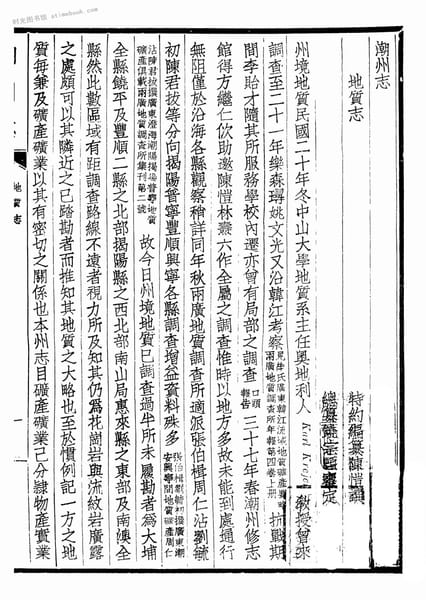 时光图书馆 · stimebook.com
潮州志
地質志
特約編纂陳愷輯
總纂饒宗頤定
州境地質民國二十年冬中山大學地質系主任奧地利人 Karl Krejci 教授曾來
調查至二十一年樂森璕姚文光又沿韓江考察見樂氏廣東韓江流域地質礦產兩廣地質調查所年報第四卷上冊抗戰期
間李貽才隨其所服務學校內遷亦曾有局部之調查口頭報告三十七年春潮州修志
館得方繼仁佽助邀陳愷林蕊六作全屬之調查惟時以地方多故未能到處通行
無阻僅於沿海各縣觀察稍詳同年秋兩廣地質調查所適派張伯楫周仁沾劉毓
初陳君拔等分向揭陽普寧豐順興寧各縣調查增益資料殊多張伯楫劉毓初撰廣東潮安興寧間地質礦產周仁
沾陳君拔撰廣東澄海潮陽揭陽普寧地質礦產俱載兩廣地質調查所集刊第二號故今日州境地質已調查過半所未履勘者為大埔
全縣饒平及豐順二縣之北部揭陽縣之西北部南山局惠來縣之東部及南澳全
縣然此數區域有距調查路線不遠者視力所及知其仍為花崗岩與流紋岩廣露
之處頗可以其隣近之已踏勘者而推知其地質之大略也至於慣例記一方之地
質每兼及礦產礦業以其有密切之關係也本州志目礦產礦業已分隸物產實業
地質志
一